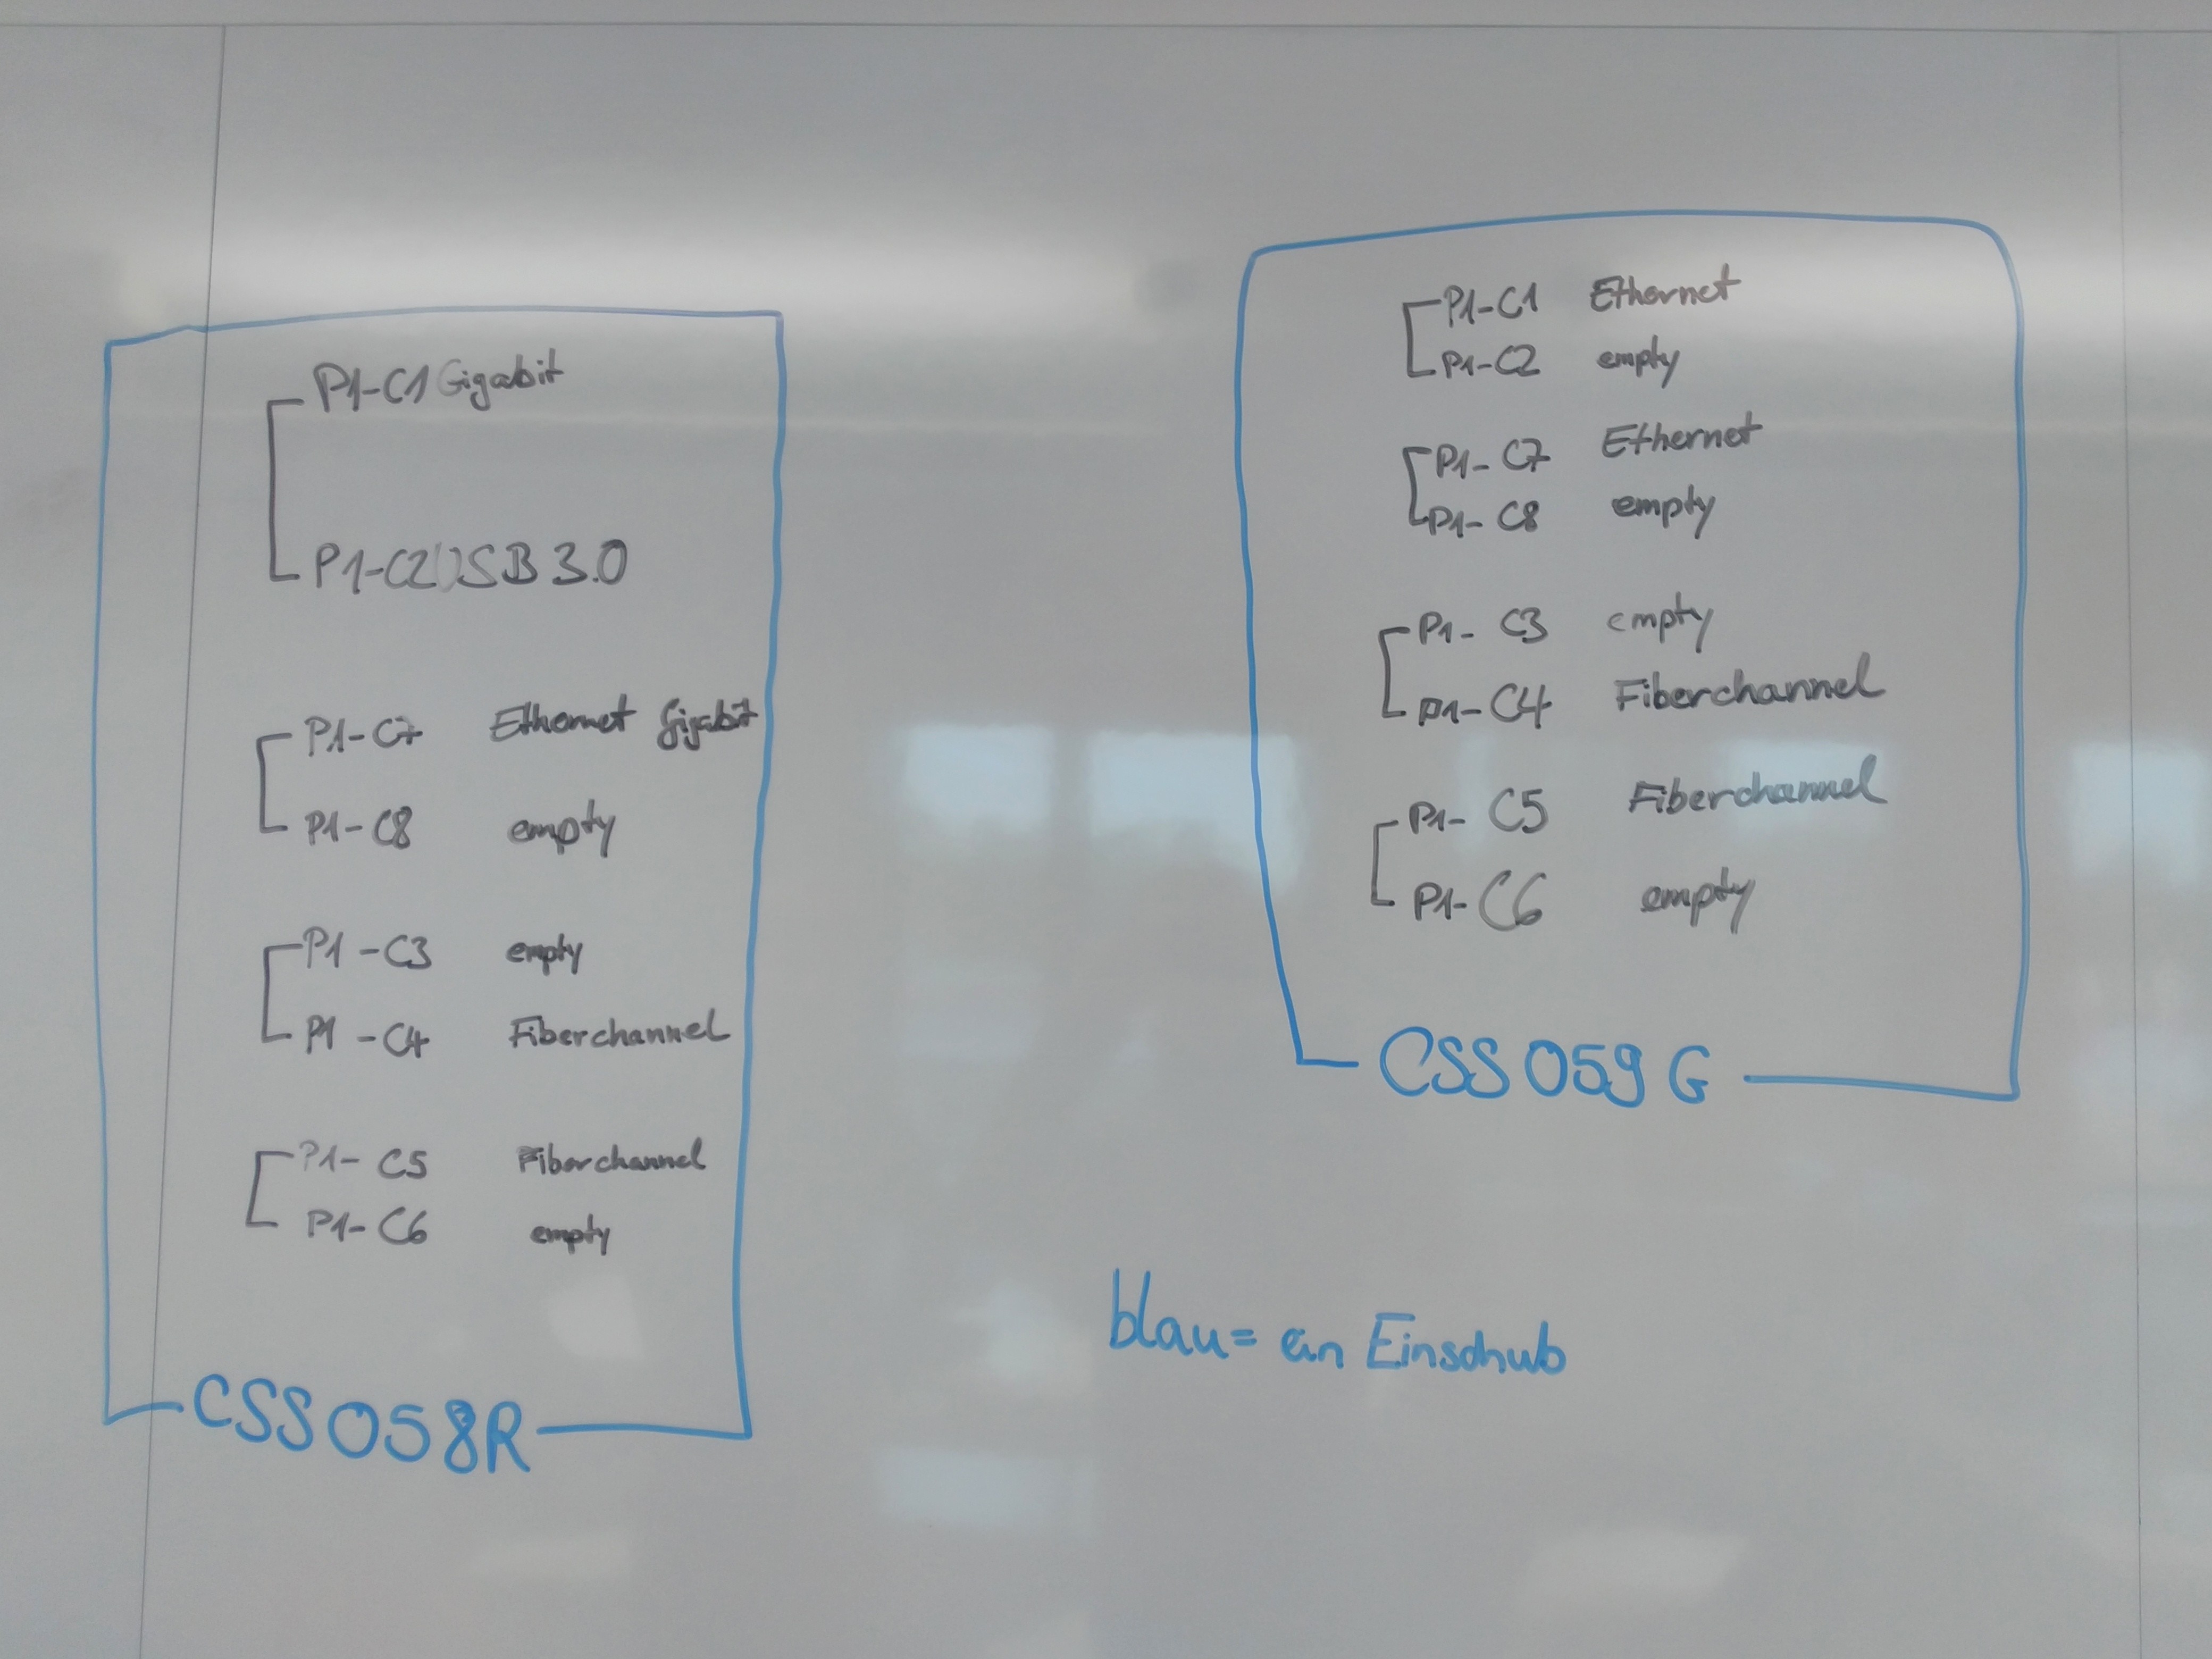 P1-C1 Gigabit
P1-C2 USB 3.0
P1-C7 Ethernet Gigabit
P1-C8 empty
P1-C3 empty
P1-C4 Fiberchannel
P1-C5 Fiberchannel
P1-C6 empty
CSS058R
P1-C1 Ethernet
P1-C2 empty
P1-C7 Ethernet
P1-C8 empty
P1-C3 empty
P1-C4 Fiberchannel
P1-C5 Fiberchannel
P1-C6 empty
CSS059G
blau= ein Einschub